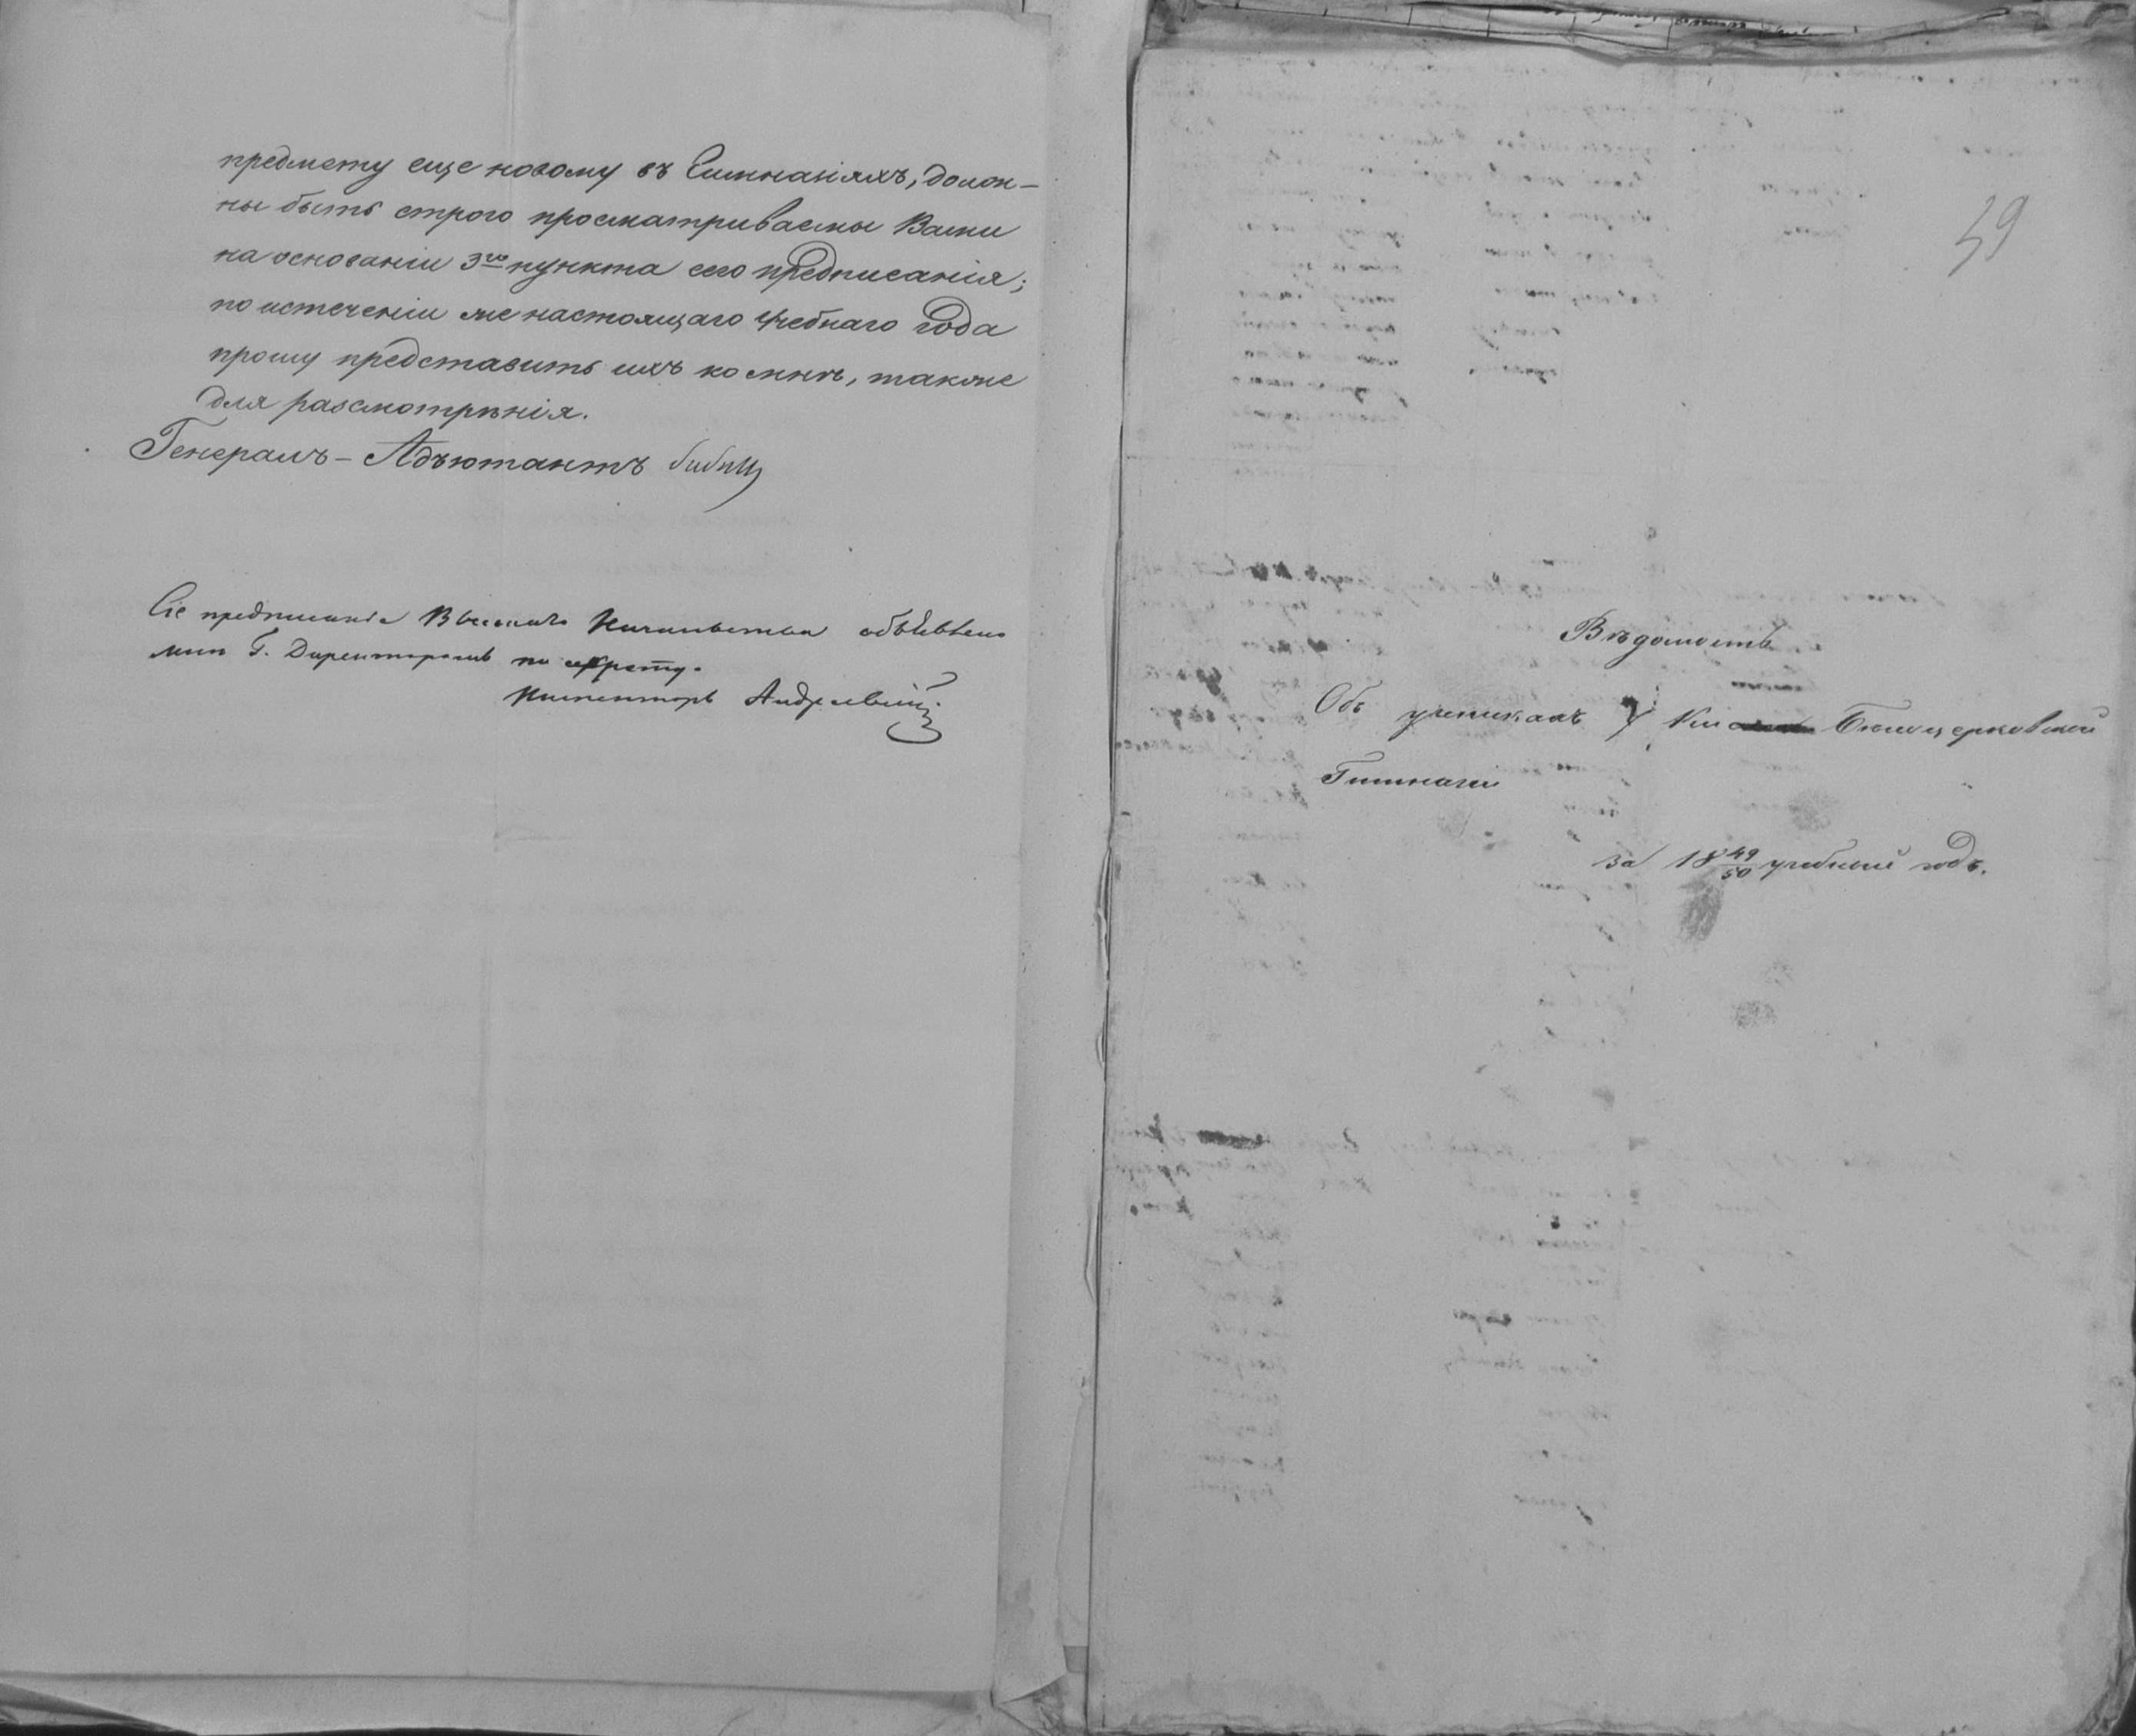 предмету еще новому въ Гимназіяхъ, долж-
ны быть строго просматриваемы Вами
на основаніи 3го пункта сего предписанія;
по истеченіи же настоящаго учебнаго года
прошу представить ихъ ко мнѣ, также
для разсмотрѣнія.
Генералъ-Адъютантъ
Сіе предписаніе Высшаго Начальства объявлено
мнѣ Г. Директоромъ по секрету.
Инспекторъ Андреевскій
59
Вѣдомость
Объ ученикахъ Бѣлоцерковской
Гимназіи
за 18 49/50 учебный годъ.